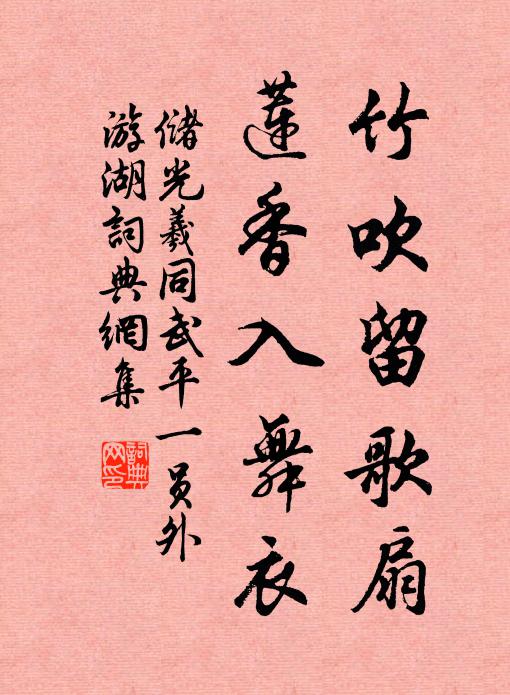 竹吹留歌扇
蓮香入舞衣
儲光羲同武平一員外
游湖詞典網集
詞典
网印